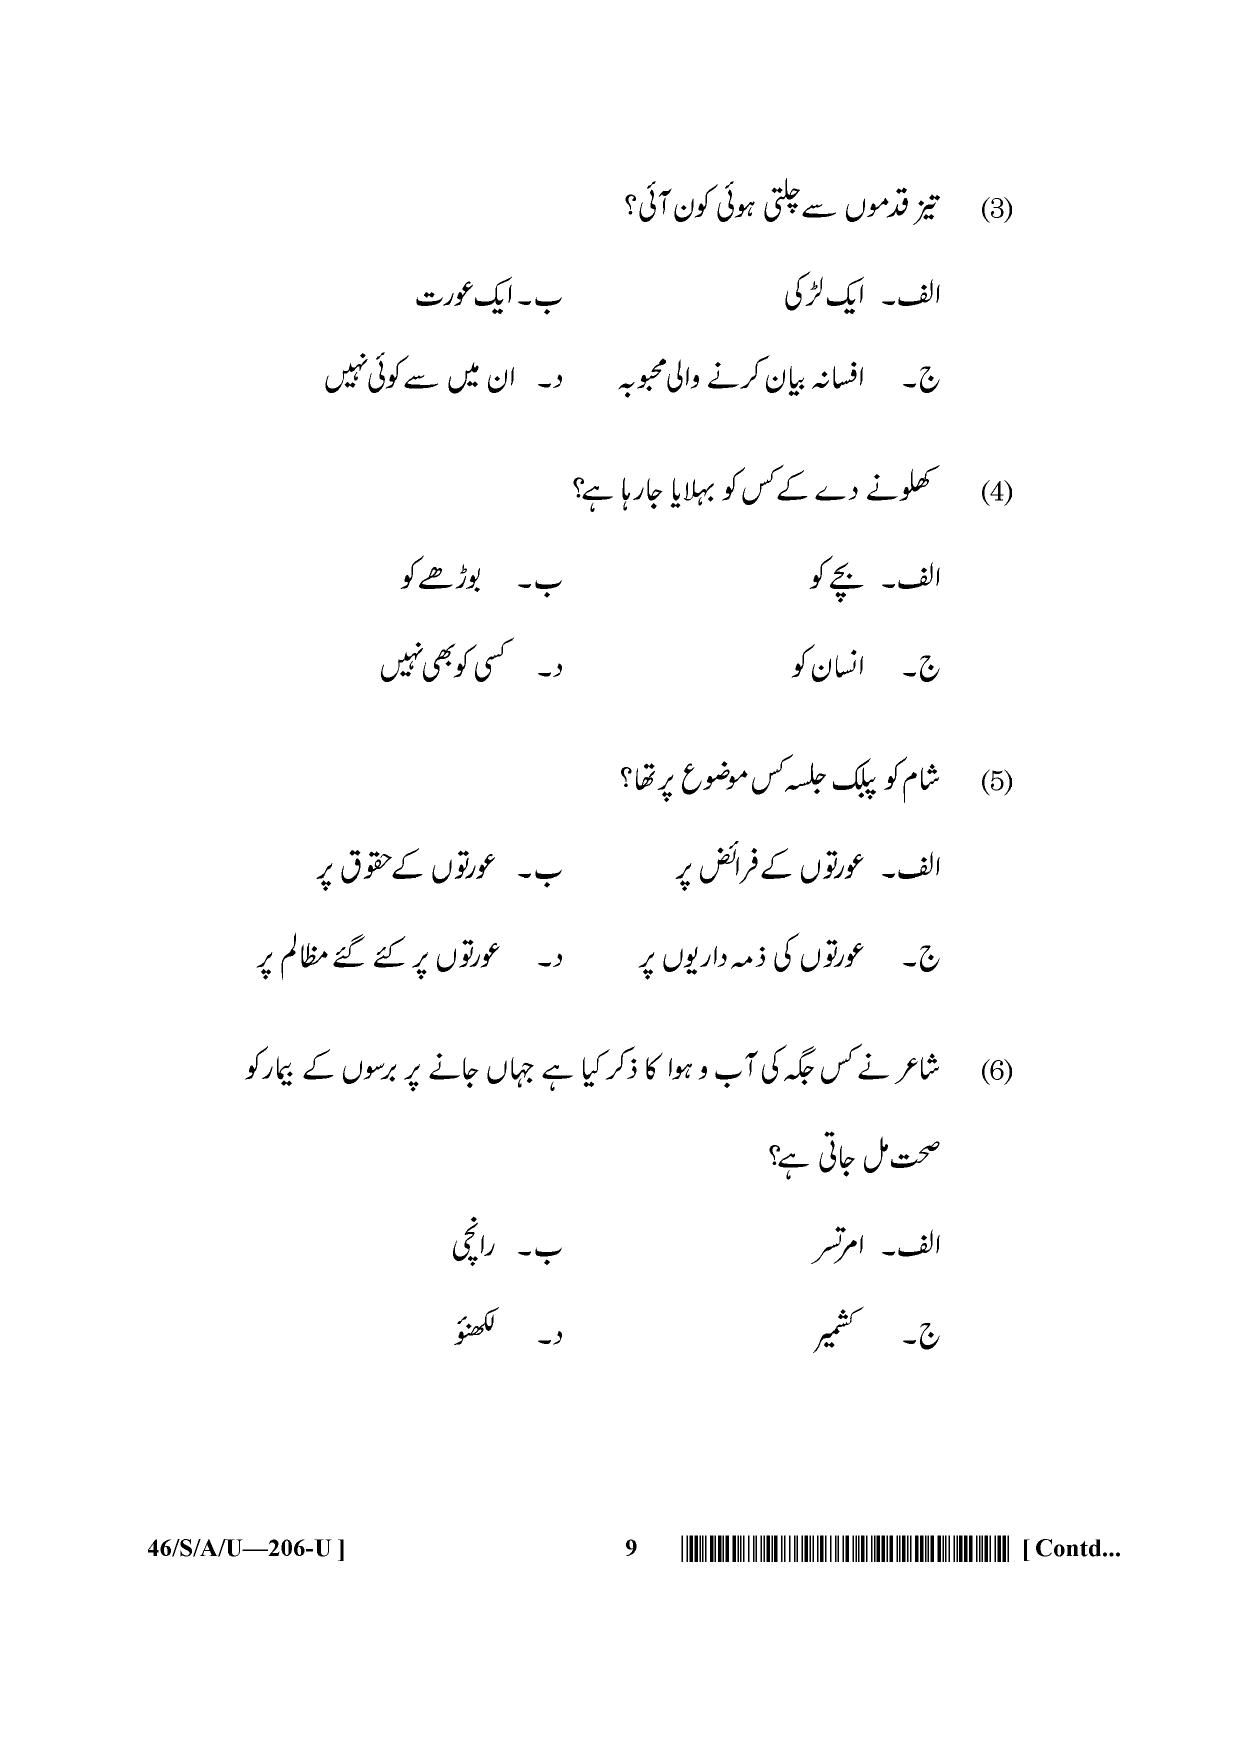 (3) تیز قدموں سے چلتی ہوئی کون آئی؟
الف۔ ایک لڑکی ب۔ ایک عورت
ج۔ افسانہ بیان کرنے والی محبوبہ د۔ ان میں سے کوئی نہیں
(4) کھلونے دے کے کس کو بہلایا جا رہا ہے؟
الف۔ بچے کو ب۔ بوڑھے کو
ج۔ انسان کو د۔ کسی کو بھی نہیں
(5) شام کو پبلک جلسہ کس موضوع پر تھا؟
الف۔ عورتوں کے فرائض پر ب۔ عورتوں کے حقوق پر
ج۔ عورتوں کی ذمہ داریوں پر د۔ عورتوں پر کئے گئے مظالم پر
(6) شاعر نے کس جگہ کی آب و ہوا کا ذکر کیا ہے جہاں جانے پر برسوں کے بیمار کو
صحت مل جاتی ہے؟
الف۔ امرتسر ب۔ رانچی
ج۔ کشمیر د۔ لکھنؤ
46/S/A/U—206-U ] 9 [ Contd...